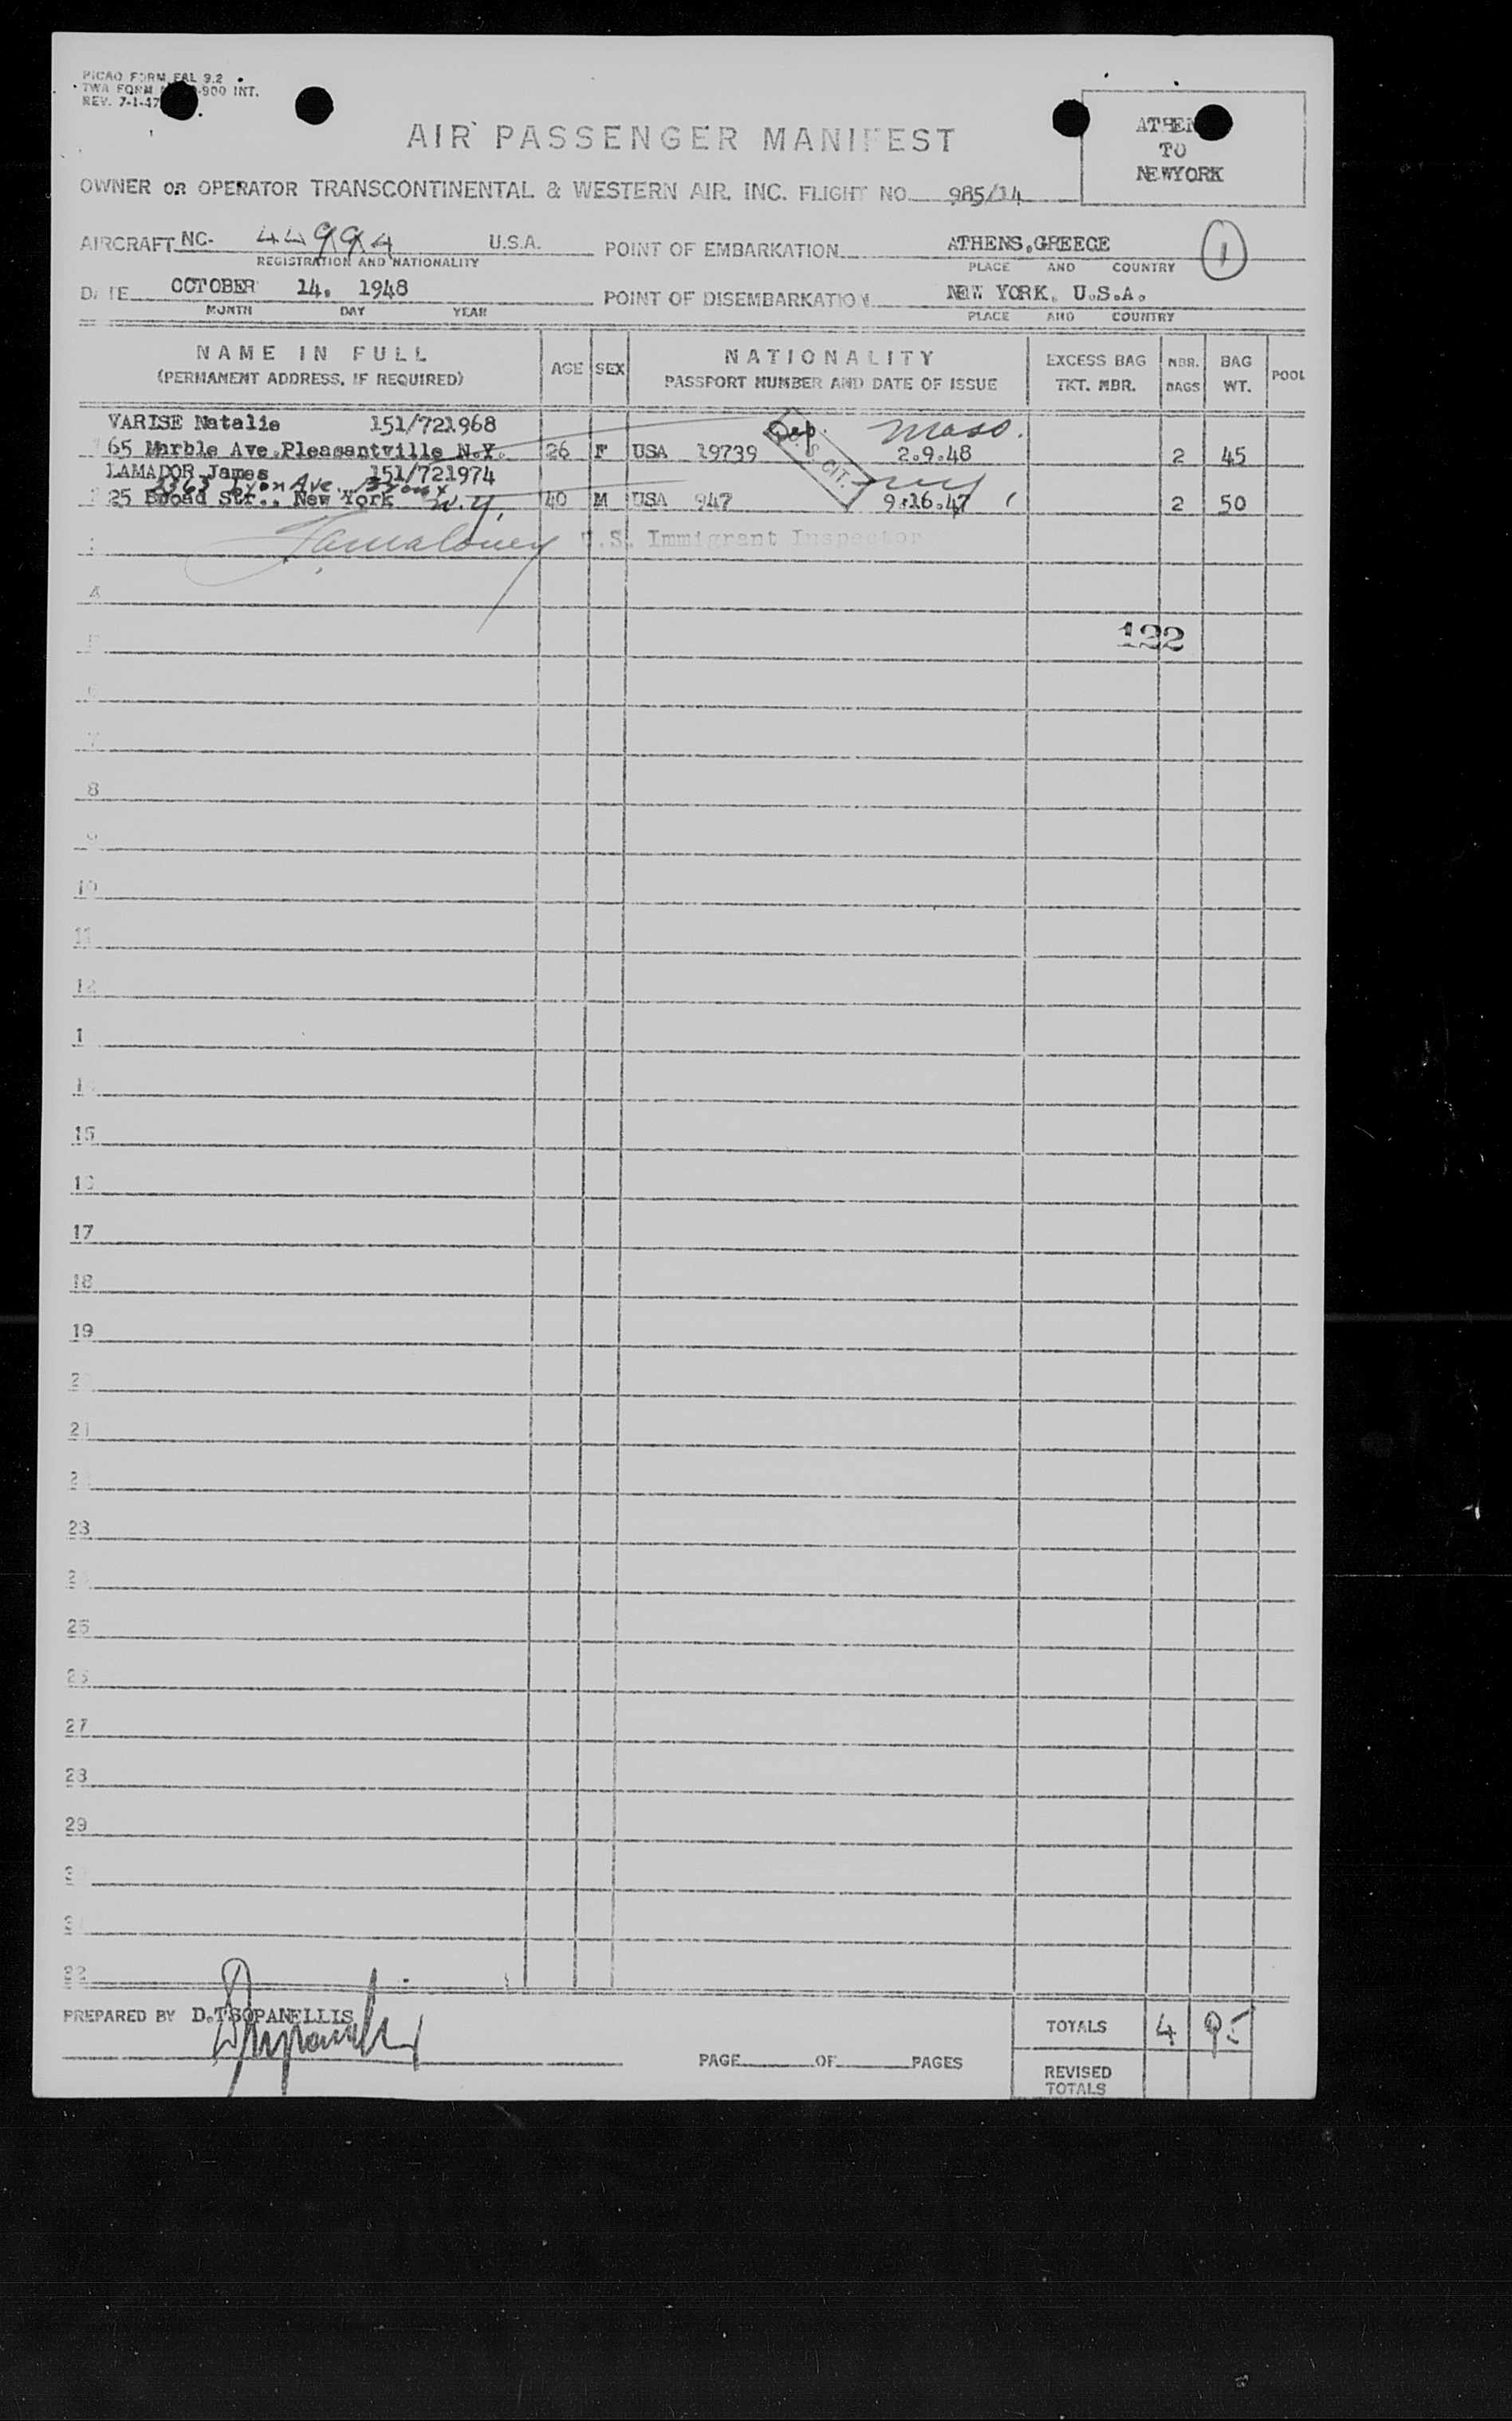 PICAO FORM FAL 9.2
TWA FORM -900 INT.
REV. 7-1-47
AIR PASSENGER MANIFEST
ATHEN
TO
NEWYORK
OWNER OR OPERATOR TRANSCONTINENTAL & WESTERN AIR, INC. FLIGHT NO. 985/14
AIRCRAFT NC- 44994 U.S.A. POINT OF EMBARKATION ATHENS,GREECE 1
REGISTRATION AND NATIONALITY PLACE AND COUNTRY
DATE OCTOBER 14, 1948 POINT OF DISEMBARKATION NEW YORK, U.S.A.
MONTH DAY YEAR PLACE AND COUNTRY
NAME IN FULL AGE SEX NATIONALITY EXCESS BAG NBR. BAG POOL
(PERMANENT ADDRESS, IF REQUIRED) PASSPORT NUMBER AND DATE OF ISSUE TKT. NBR. BAGS WT.
VARISE Natalie 151/721968 Dep. Mass.
65 Marble Ave.Pleasantville N.Y. 26 F USA 19739 S. CIT. 2.9.48 2 45
LAMADOR James 151/721974
2363 Lyon Ave. Bronx N.Y.
25 Broad Str., New York 40 M USA 947 9.16.47 2 50
U.S. Immigrant Inspector
4
122
7
8
10
11
12
1
1
15
17
18
19
2
21
2
23
2
25
26
27
28
29
3
3
32
PREPARED BY D.TSOPANELLIS
TOTALS 4 95
PAGE OF PAGES
REVISED
TOTALS